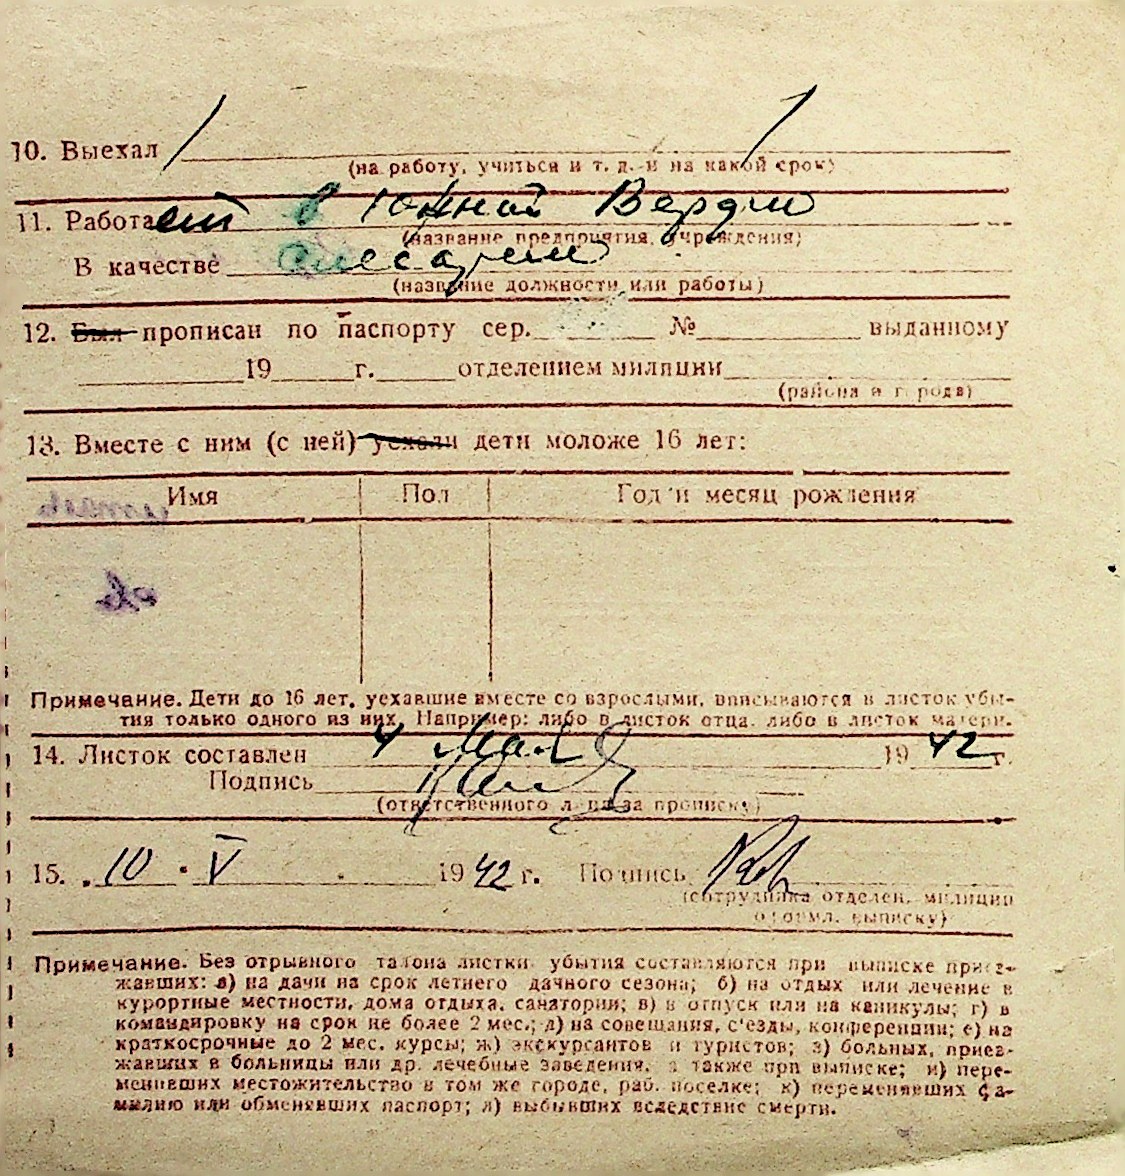 10. Выехал
(на работу, учиться и т. д. и на какой срок)
11. Работает в Южной Верфи
(название предприятия, учреждения)
В качестве слесарем
(название должности или работы)
12. Был прописан по паспорту сер. № выданному
19 г. отделением милиции
(района и города)
13. Вместе с ним (с ней) уехали дети моложе 16 лет:
Имя Пол Год и месяц рождения
Примечание. Дети до 16 лет, уехавшие вместе со взрослыми, вписываются в листок убы-
тия только одного из них. Например: либо в листок отца, либо в листок матери.
14. Листок составлен 4 Мая 1942 г.
Подпись
(ответственного лица за прописку)
15. 10 · V 1942 г. Подпись
(сотрудника отделен. милиции
оформл. выписку)
Примечание. Без отрывного талона листки убытия составляются при выписке приез-
жавших: а) на дачи на срок летнего дачного сезона; б) на отдых или лечение в
курортные местности, дома отдыха, санатории; в) в отпуск или на каникулы; г) в
командировку на срок не более 2 мес.; д) на совещания, с'езды, конференции; е) на
краткосрочные до 2 мес. курсы; ж) экскурсантов и туристов; з) больных, приез-
жавших в больницы или др. лечебные заведения, а также при выписке; и) пере-
менивших местожительство в том же городе, раб. поселке; к) переменивших фа-
милию или обменявших паспорт; л) выбывших вследствие смерти.